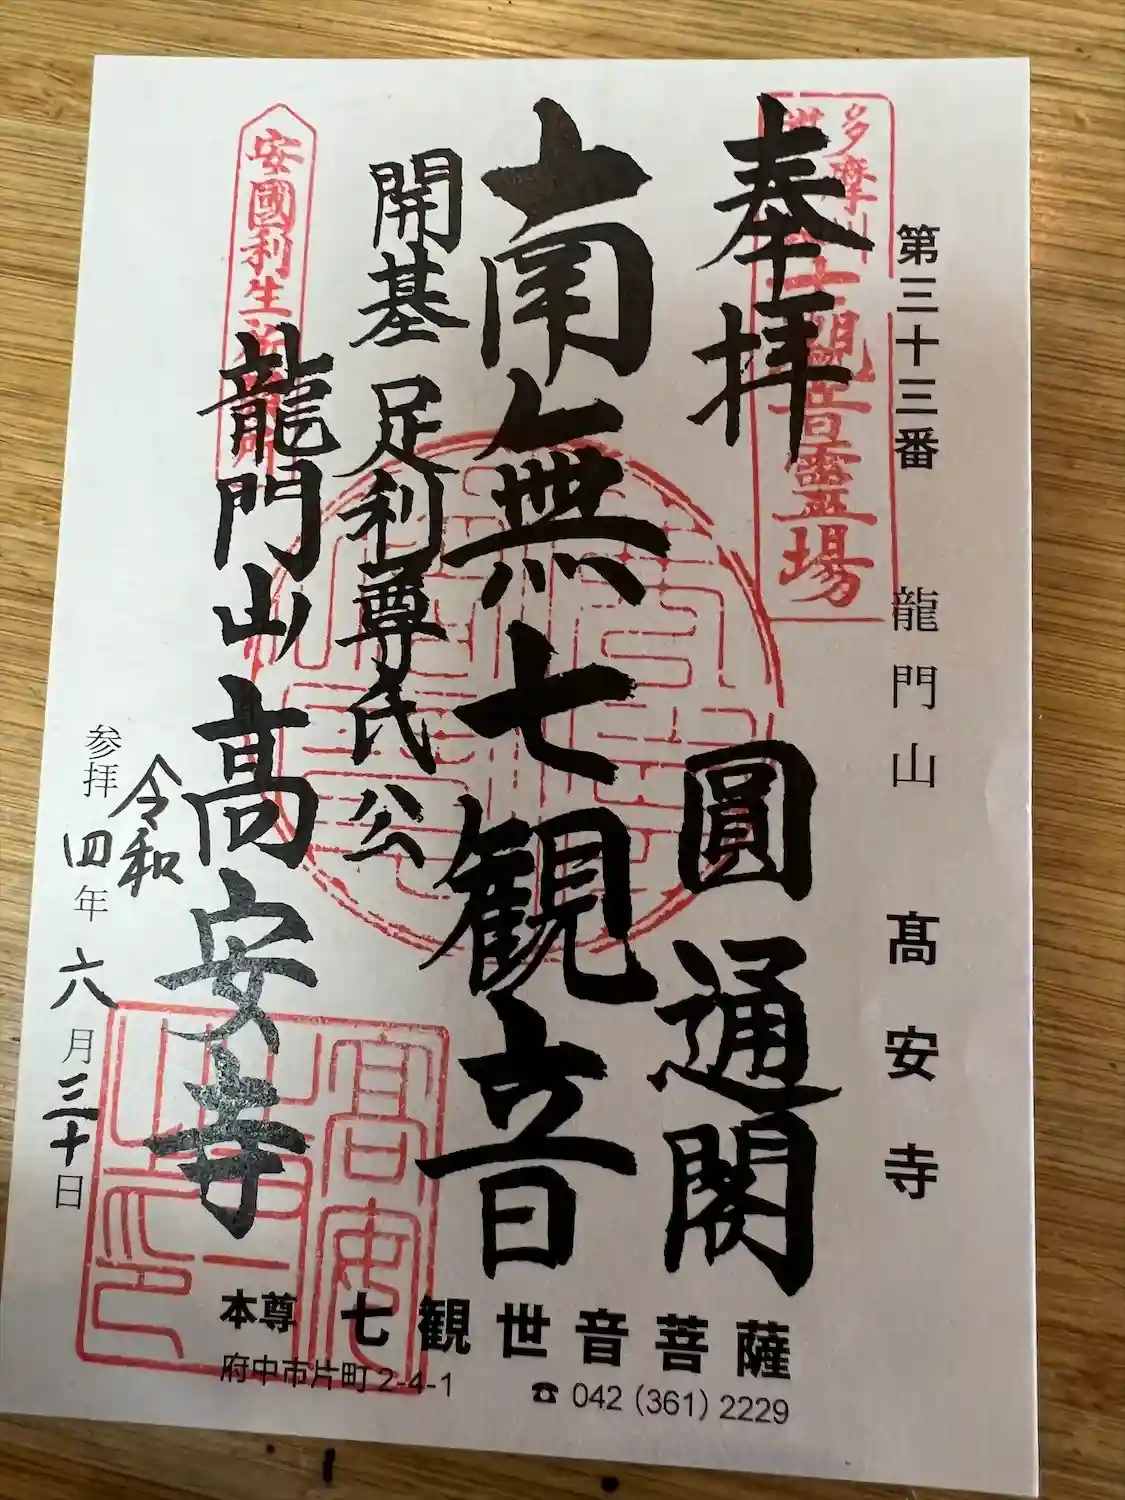 第三十三番 龍門山 髙安寺
多摩川
三十三観音霊場
奉拝 圓通閣
南無七観音
開基 足利尊氏公
安國利生
龍門山高安寺
参拝 令和四年六月三十日
高安
本尊 七観世音菩薩
府中市片町2-4-1 ☎ 042 (361) 2229